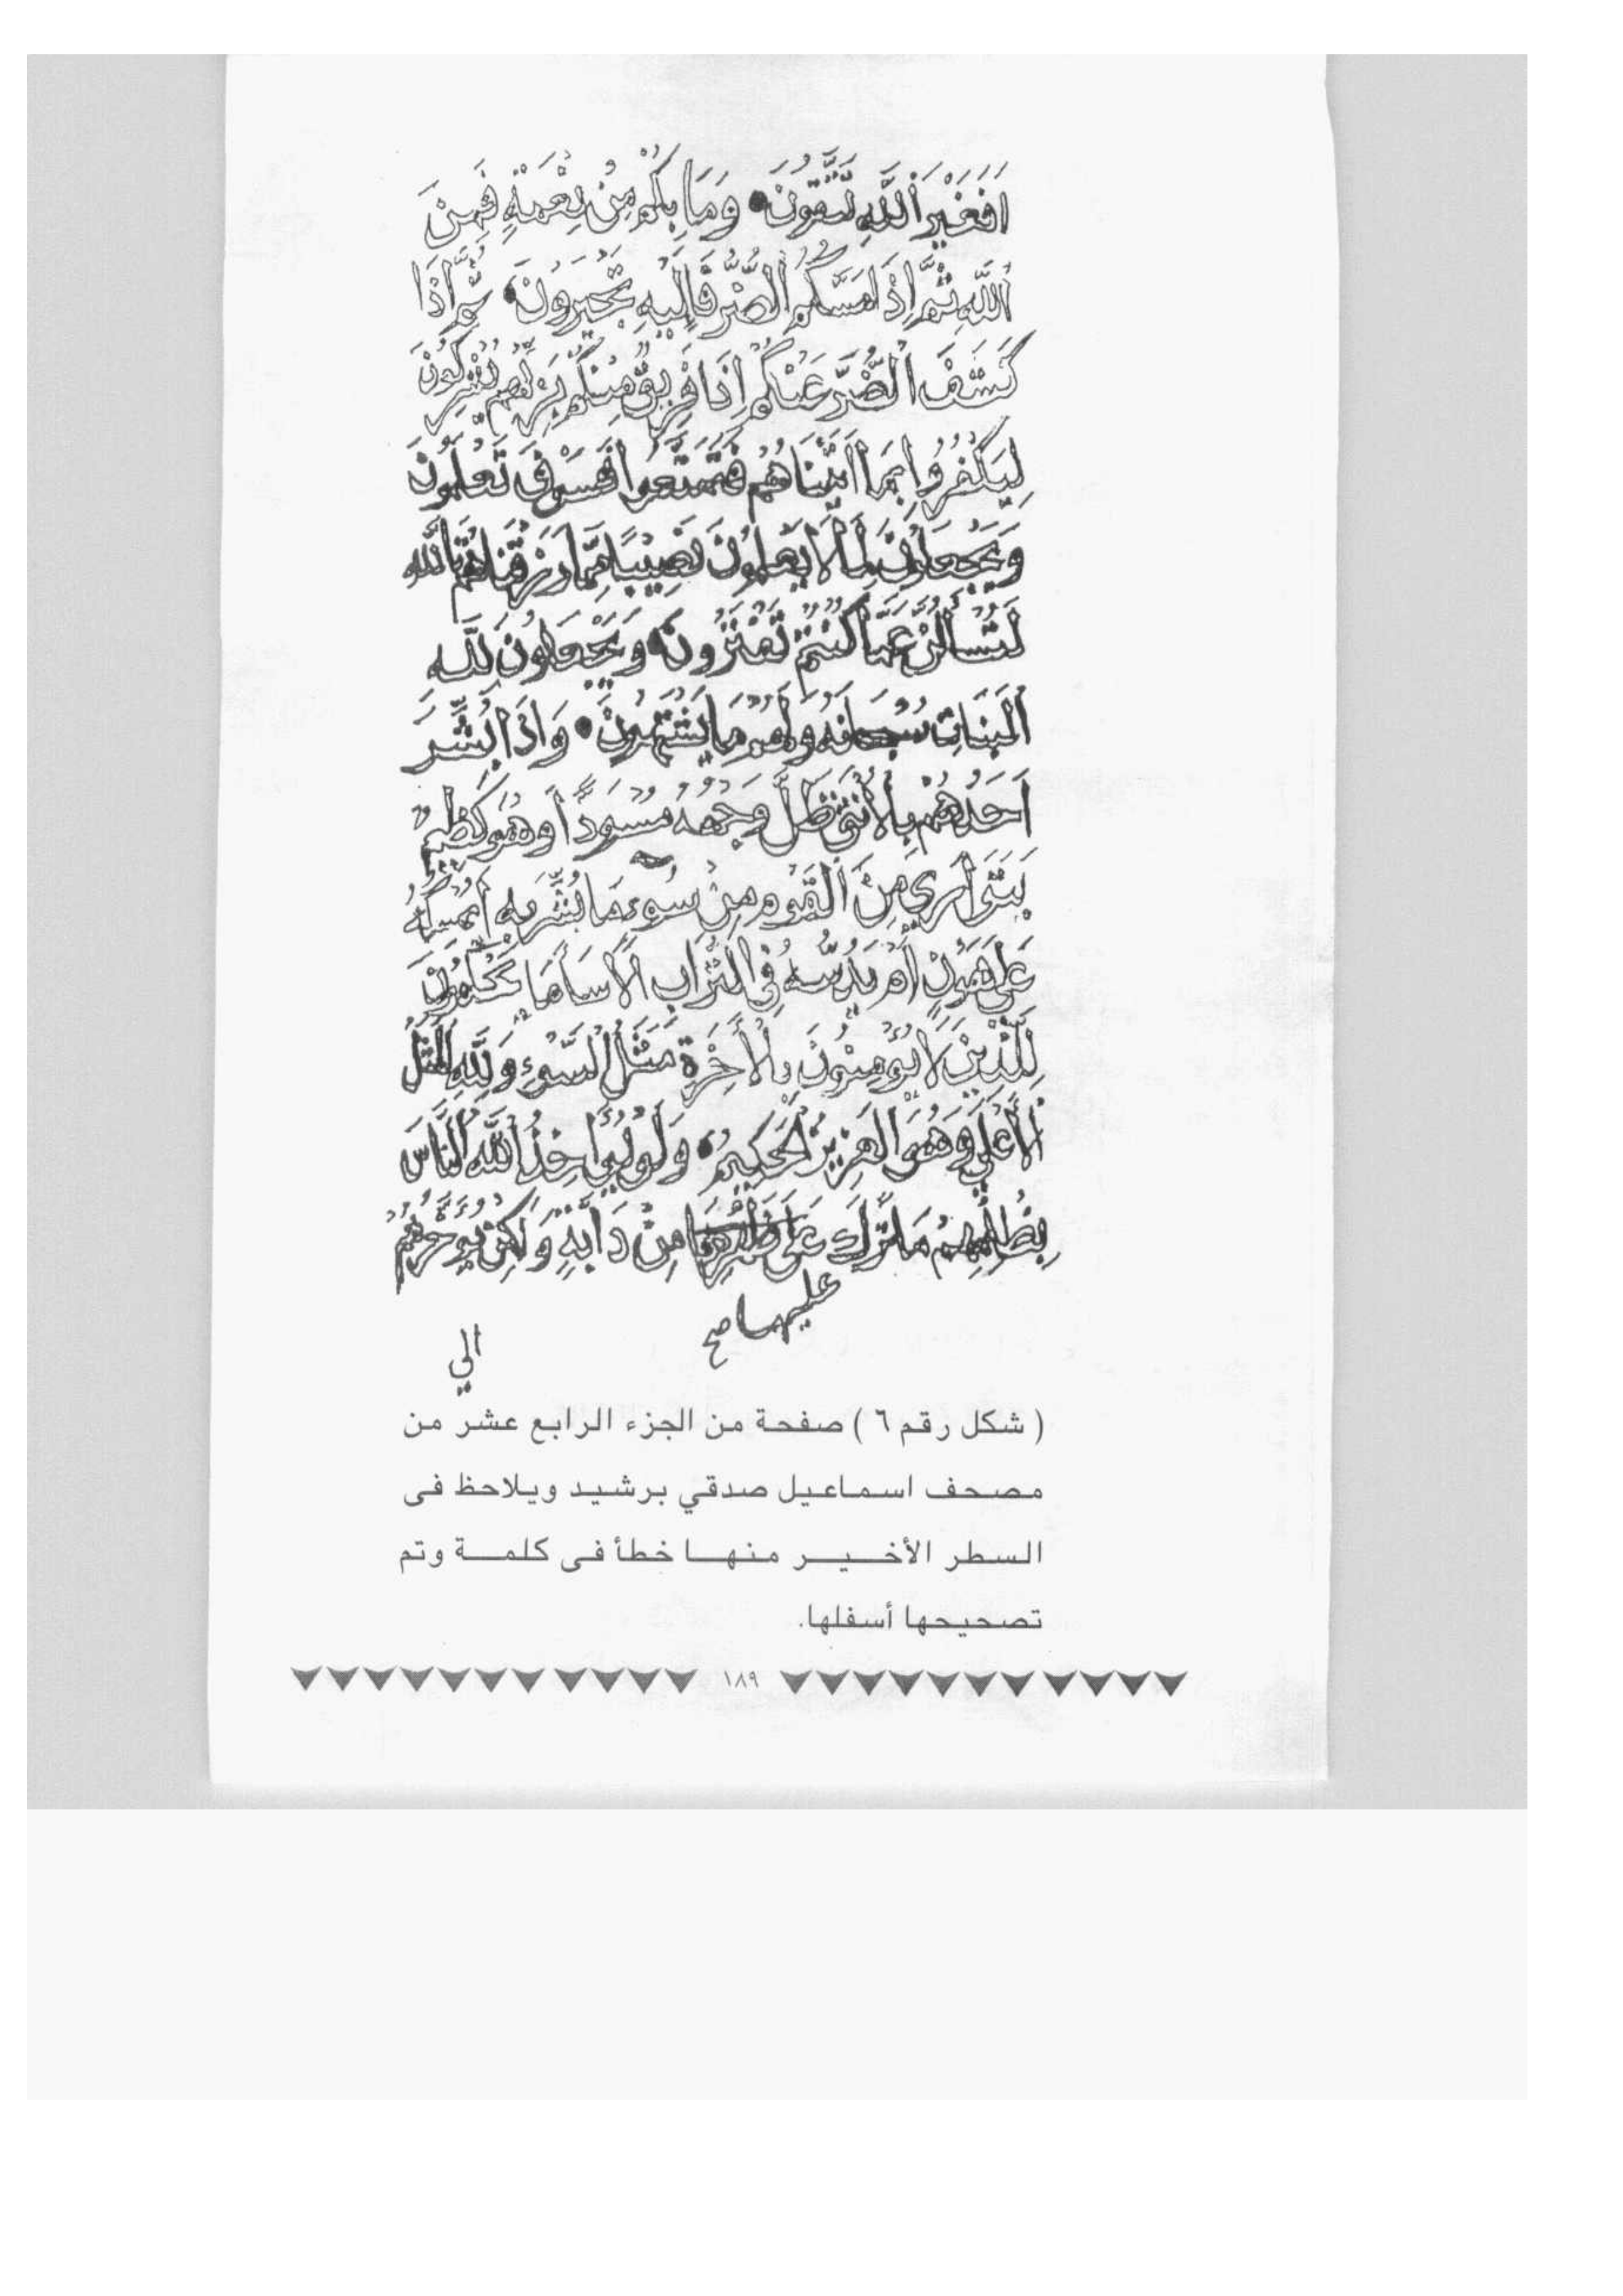 اَفَغَيْرَ اَللَّهِ تَتَّقُونَ وَمَا بِكُمْ مِنْ نِعْمَةٍ فَمِنَ
اَللَّهِ ثُمَّ اِذَا مَسَّكُمُ الضُّرُّ فَاِلَيْهِ تَجْئَرُونَ ثُمَّ اِذَا
كَشَفَ الضُّرَّ عَنْكُمْ اِذَا فَرِيقٌ مِنْكُمْ بِرَبِّهِمْ يُشْرِكُونَ
لِيَكْفُرُوا بِمَا اَتَيْنَاهُمْ فَتَمَتَّعُوا فَسَوْفَ تَعْلَمُونَ
وَيَجْعَلُونَ لِمَا لَا يَعْلَمُونَ نَصِيبًا مِمَّا رَزَقْنَاهُمْ تَاللَّهِ
لَتُسْأَلُنَّ عَمَّا كُنْتُمْ تَفْتَرُونَ وَيَجْعَلُونَ لِلَّهِ
اَلْبَنَاتِ سُبْحَانَهُ وَلَهُمْ مَا يَشْتَهُونَ وَاِذَا بُشِّرَ
اَحَدُهُمْ بِالْأُنْثَى ظَلَّ وَجْهُهُ مُسْوَدًّا وَهُوَ كَظِيمٌ
يَتَوَارَي مِنَ اَلْقَوْمِ مِنْ سُوءِ مَا بُشِّرَ بِهِ اَيُمْسِكُهُ
عَلَى هُونٍ اَمْ يَدُسُّهُ فِي التُّرَابِ اَلَا سَاءَ مَا يَحْكُمُونَ
لِلَّذِينَ لَا يُؤْمِنُونَ بِالْأَخِرَةِ مَثَلُ السَّوْءِ وَلِلَّهِ الْمَثَلُ
اَلْأَعْلَى وَهُوَ الْعَزِيزُ الْحَكِيمُ وَلَوْ يُؤَاخِذُ اَللَّهُ النَّاسَ
بِظُلْمِهِمْ مَا تَرَكَ عَلَى ظَهْرِهَا مِنْ دَابَّةٍ وَلَكِنْ يُؤَخِّرُهُمْ
عليها صح
الي
( شكل رقم ٦ ) صفحة من الجزء الرابع عشر من
مصحف اسماعيل صدقي برشيد ويلاحظ فى
السطر الأخير منها خطأ فى كلمة وتم
تصحيحها أسفلها.
١٨٩